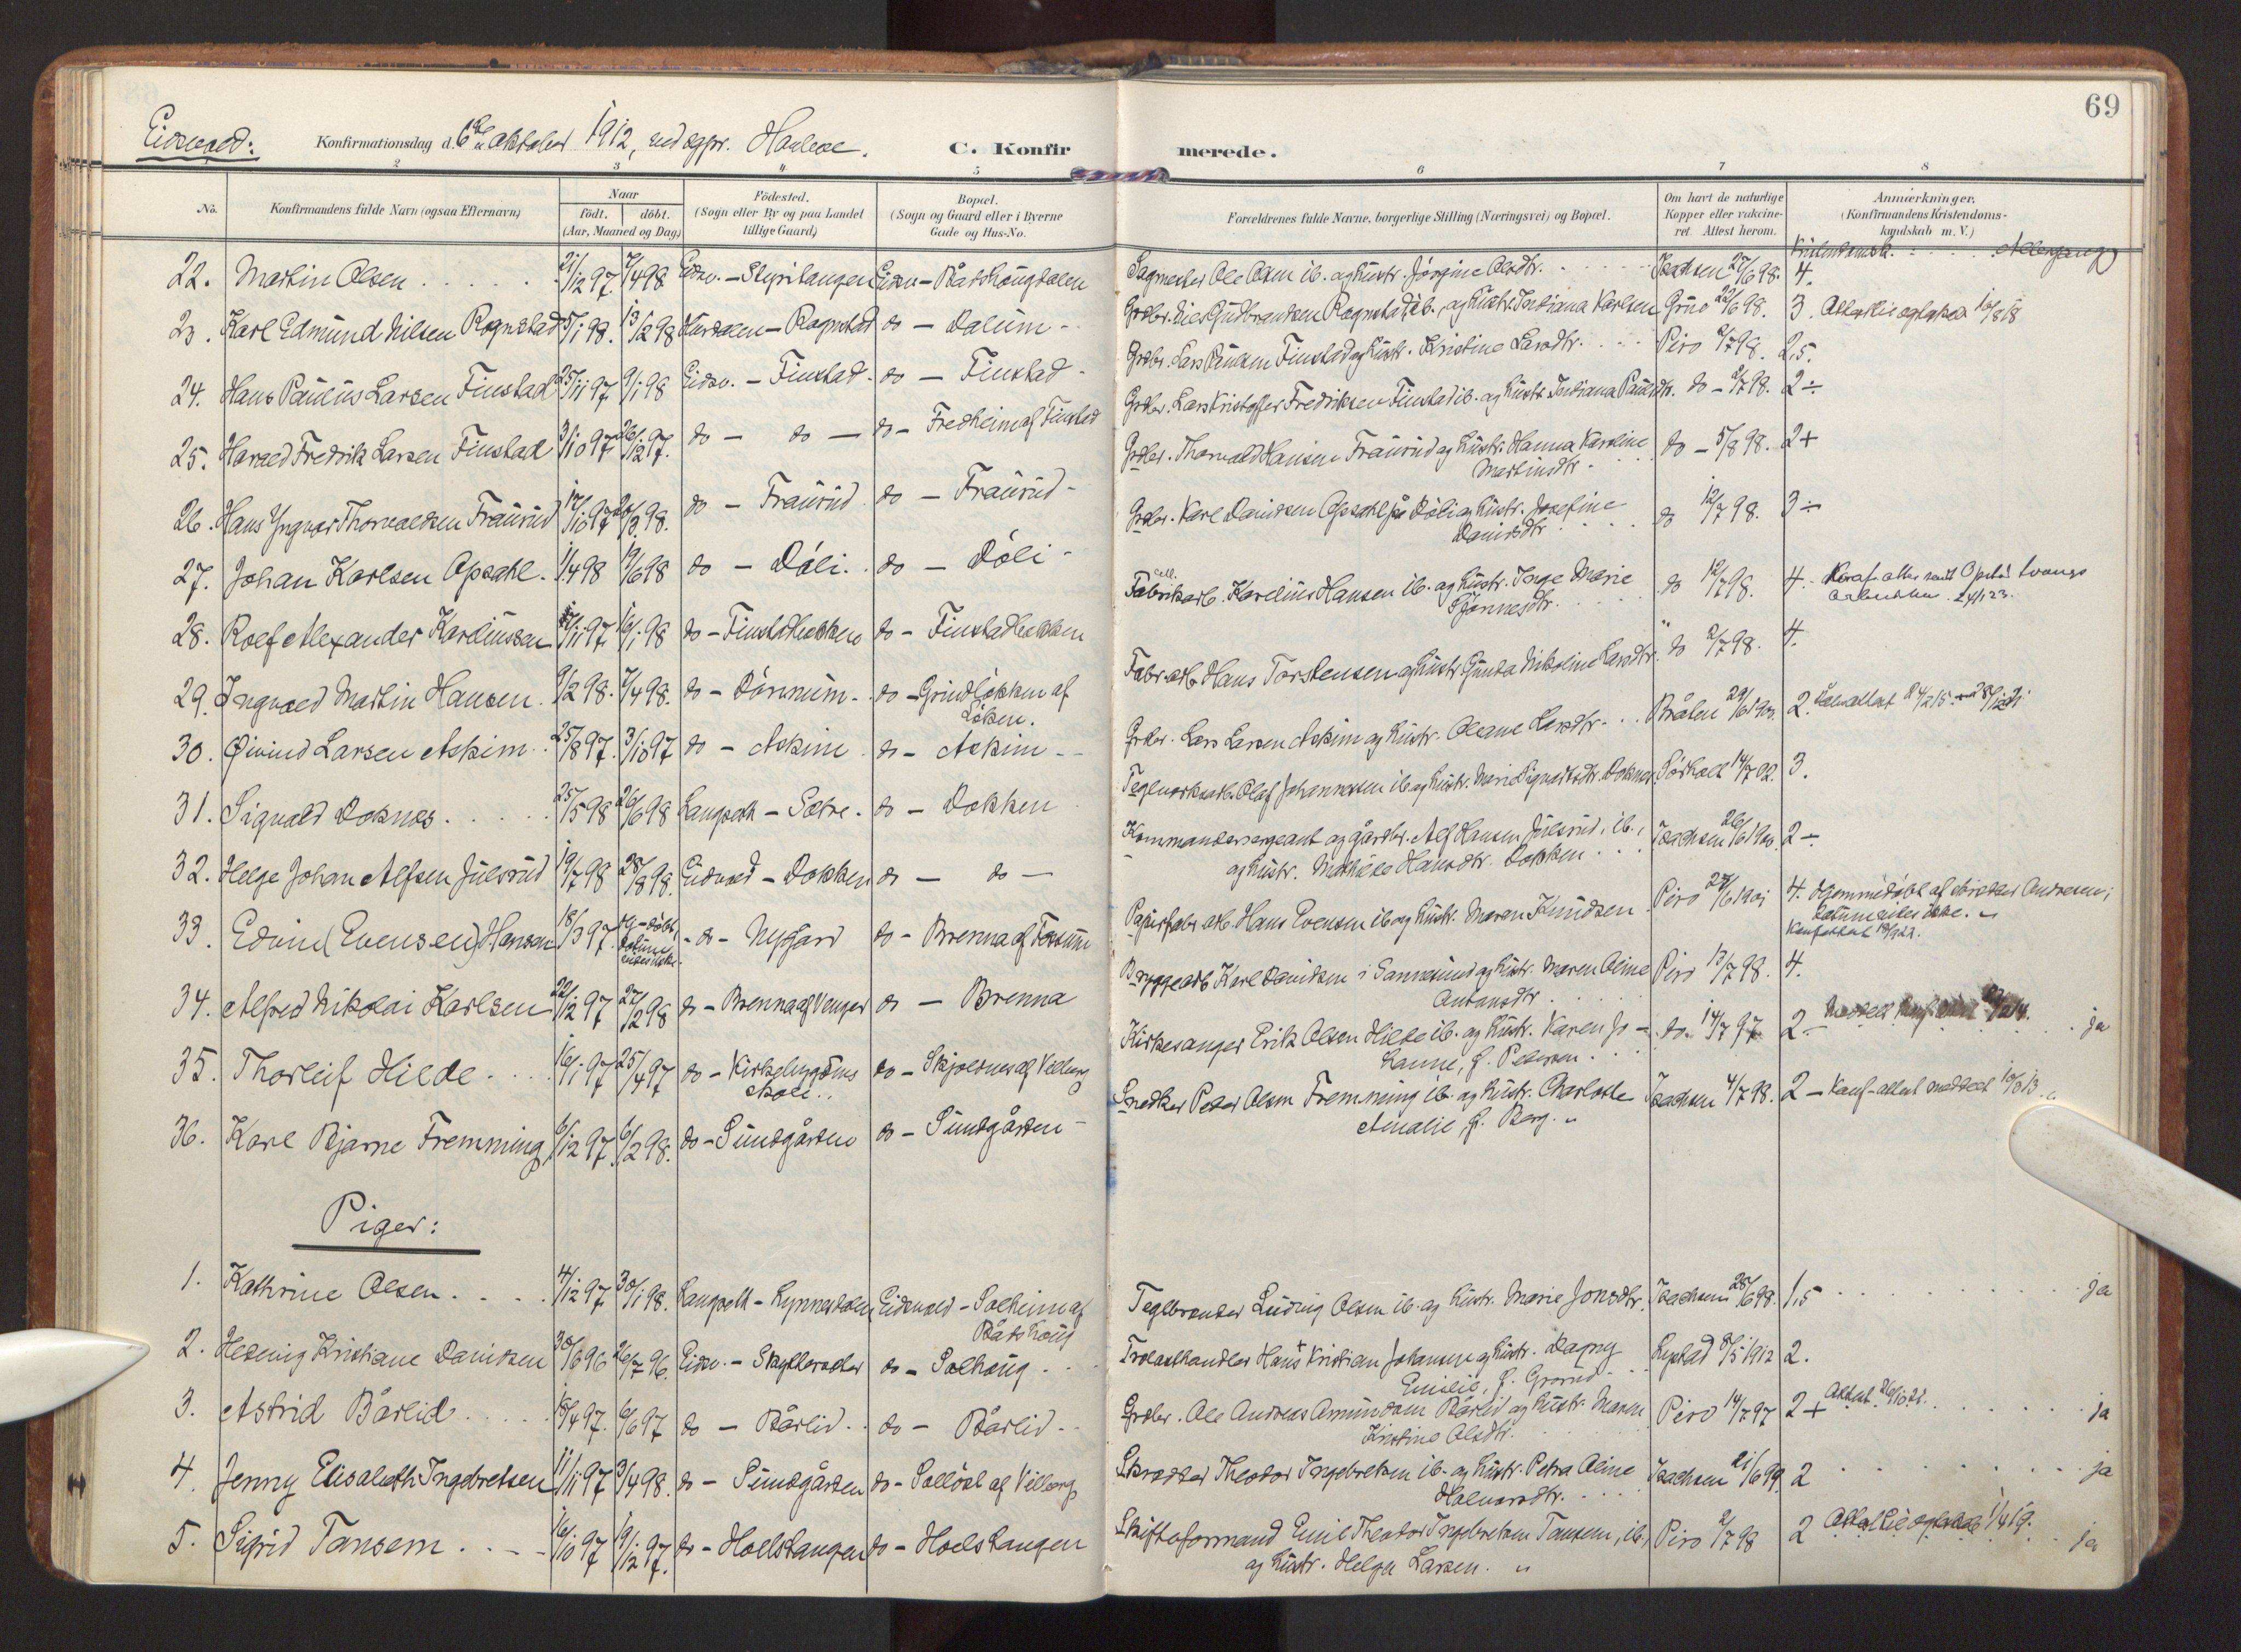 69
Eidsvold: Konfirmationsdag d. 6te Oktober 1912, ved sgpr. C. Konfirmerede.
1 2 3 4 5 6 7 8
No. Konfirmandens fulde Navn (ogsaa Efternavn) Naar født. døbt. (Aar, Maaned og Dag) Fødested. (Sogn eller By og paa Landet tillige Gaard) Bopæl. (Sogn og Gaard eller i Byerne Gade og Hus-No. Forældrenes fulde Navne, borgerlige Stilling (Næringsvei) og Bopæl. Om havt de naturlige Kopper eller vakcineret. Attest herom. Anmærkninger. (Konfirmandens Kristendomskundskab m. V.)
Kristendomsk. Altergang
22. Martin Olsen 21/12 97. 7/4 98 Eidsv. - Styritangen Eidsv - Baatshaugdalen Sagmester Ole Olsen ib. og hustr. Jørgine Olsdtr. Isachsen 27/6 98. 4.
23. Karl Edmund Nilsen Rognstad 5/1 98. 13/2 98 Hurdalen - Rognstad do - Dalum - Grdbr. Nils Gudbrandsen Rognstad, ib., og hustr. Indiana Karlsen Gruo 22/6 98. 3. 10/8 18
24. Hans Paulus Larsen Finstad 25/11 97 9/1 98 Eidsv. - Finstad do - Finstad - Grdbr. Lars Paulsen Finstad og hustr. Kristine Larsdtr. Piro 2/7 98. 2,5.
25. Harald Fredrik Larsen Finstad 31/10 97 26/12 97. do - do - do - Fredheim af Finstad Grdbr. Lars Kristoffer Fredriksen Finstad ib. og hustr. Indiana Paulsdtr. do - 2/7 98. 2÷
26. Hans Yngvar Thorvaldsen Fraurud 17/10 97 20/3 98. do - Fraurud do - Fraurud - Grdbr. Thorvald Hansen Fraurud og hustr. Hanna Karoline Martinsdtr. do - 5/8 98. 2+
27. Johan Karlsen Opsahl. 1/4 98 19/6 98 do - Døli. do - Døli - Grdbr. Karl Davidsen Opsahl på Døli og hustr. Josefine Davidsdtr. do 12/7 98. 3÷
28. Rolf Alexander Karelinssen 11 97. 16/1 98 do - Finstadbakken do - Finstadbakken Fabrikarb. Karelius Hansen ib. og hustr. Inge Marie do 12/7 98. 4.
29. Ingvald Martin Hansen. 9/2 98. 7/4 98. do - Dønnum - do - Grindløkken af Løken. Fabr. arb. Hans Torstensen og hustr. Gunda Nikoline Larsdtr. do 2/7 98. 4.
30. Øivind Larsen Askim 25/8 97. 3/10 97 do - Askim do - Askim - Grdbr. Lars Larsen Askim og hustr. Oleane Larsdtr. Bråten 29/6 1900. 2.
31. Sigvald Doknes 25/5 98 26/6 98 Langseth - Sætre. do - Dokken Teglverksarb. Olaf Johannesen ib og hustr. Marie Sigvartsdtr. Doknes Sørhall 14/7 02. 3.
32. Helge Johan Alfsen Julsrud 19/7 98 28/8 98. Eidsvold - Dokken do - do - Kommandersergeant og gårdbr. Alf Hansen Julsrud, ib., og hustr. Mathilde Hansdtr. Dokken Isachsen 26/6 1900. 2÷
33. Edvin (Evensen) Hansen 18/3 97. Hj-døbt, datum vides ikke. - do - Nygård do - Brenna af Fossum Papirfabr. arb. Hans Evensen ib og hustr. Maren Knudsen Piro 6 1901 4. Hjemmedøbt af Andresen; datum vides ikke.
34. Alfred Nikolai Karlsen 22/12 97 27/2 98 do - Brenna af Venger do - Brenna Bryggearb Karl Davidsen i Sannesund og hustr. Maren Oline Antonsdtr Piro 13/7 98. 4.
35. Thorleif Hilde 16/1 97 25/4 97 do - Kirkebygdens skole. do - Skjoldnes af Vilberg Kirkesanger Erik Olsen Hilde ib. og hustr. Karen Johanne, f. Petersen. do. 14/7 97. 2 - ja
36. Karl Bjarne Fremming 6/12 97 6/2 98. do - Sundgården do - Sundgården - Snedker Peder Olsen Fremming ib. og hustr. Charlotte Amalie, f. Berg. Isachsen 4/7 98. 2 - Konf-attest meddelt 10/3 13
Piger:
1. Kathrine Olsen 4/12 97 30/1 98. Langseth - Lynnesdalen Eidsvold - Solheim af Bådshaug Teglbrænder Ludvig Olsen ib. og hustr. Marie Jonsdtr. Isachsen 28/6 98. 1,5 ja
2. Hedevig Kristiane Davidsen 30/6 96 26/7 96. Eidsv. - Skytteroder do - Solhaug Trælasthandler Hans Kristian Johansen og hustr. Dagny Emilie, f. Grorud Lystad 8/5 1912 2.
3. Astrid Bårlid 18/4 97. 6/6 97 do - Bårlid do - Bårlid Grdbr. Ole Andreas Amundsen Bårlid og hustr. Maren Kristine Olsdtr. Piro 14/7 97 2+ Attest 26/10 21. ja
4. Jenny Elisabeth Ingebretsen 11/11 97 3/4 98. do - Sundgården do - Solløst af Vilberg Skrædder Theodor Ingebretsen ib. og hustr. Petra Oline Halvorsdtr. Isachsen 21/6 99 2 ja
5. Sigrid Tansem 16/10 97 19/12 97. do - Hoelstangen do - Hoelstangen Skifteformand Emil Theodor Ingebretsen Tansem, ib., og hustr. Helga Larsen. Piro 2/7 98 2 1/4 19. ja